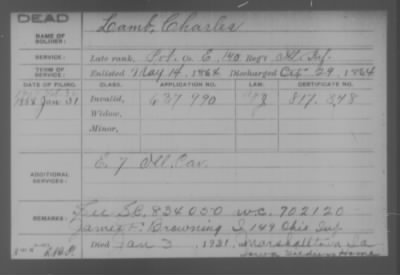 DEAD
NAME OF SOLDIER: Lamb, Charles
SERVICE: Late rank, Pvt. Co. E, 140 Reg't Ill. Inf.
TERM OF SERVICE: Enlisted May 14, 1864 Discharged Oct 29, 1864
DATE OF FILING. CLASS. APPLICATION NO. LAW. CERTIFICATE NO.
1888 Jan 31. Invalid, 637 990 817.348
Widow,
Minor,
ADDITIONAL SERVICES: E. 7 Ill. Cav.
REMARKS: See S.C. 834050 W.C. 702120
James F. Browning I, 149 Ohio Inf
Died Jan 3, 1931, Marshalltown Ia
Iowa Soldiers Home